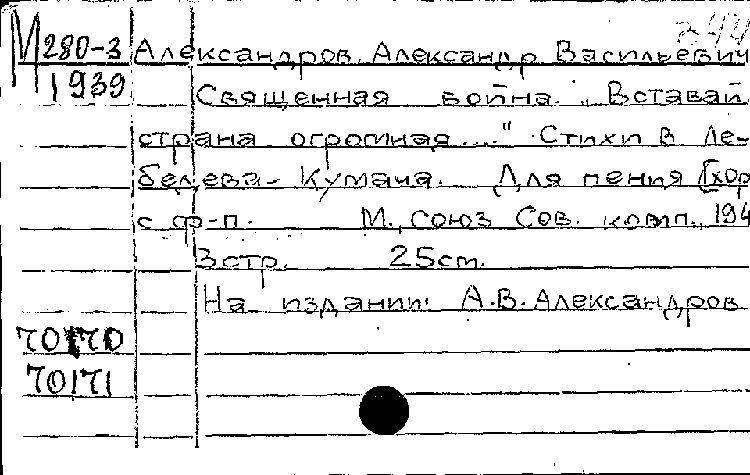 244
М280-3 Александров, Александр Васильевич
1939 Священная война. „Вставай,
страна огромная...." Стихи В. Ле-
бедева-Кумача. Для пения [хор
с ф-п. М., Союз Сов. комп., 194
3 стр. 25 см.
На издании: А.В. Александров
70170
70171